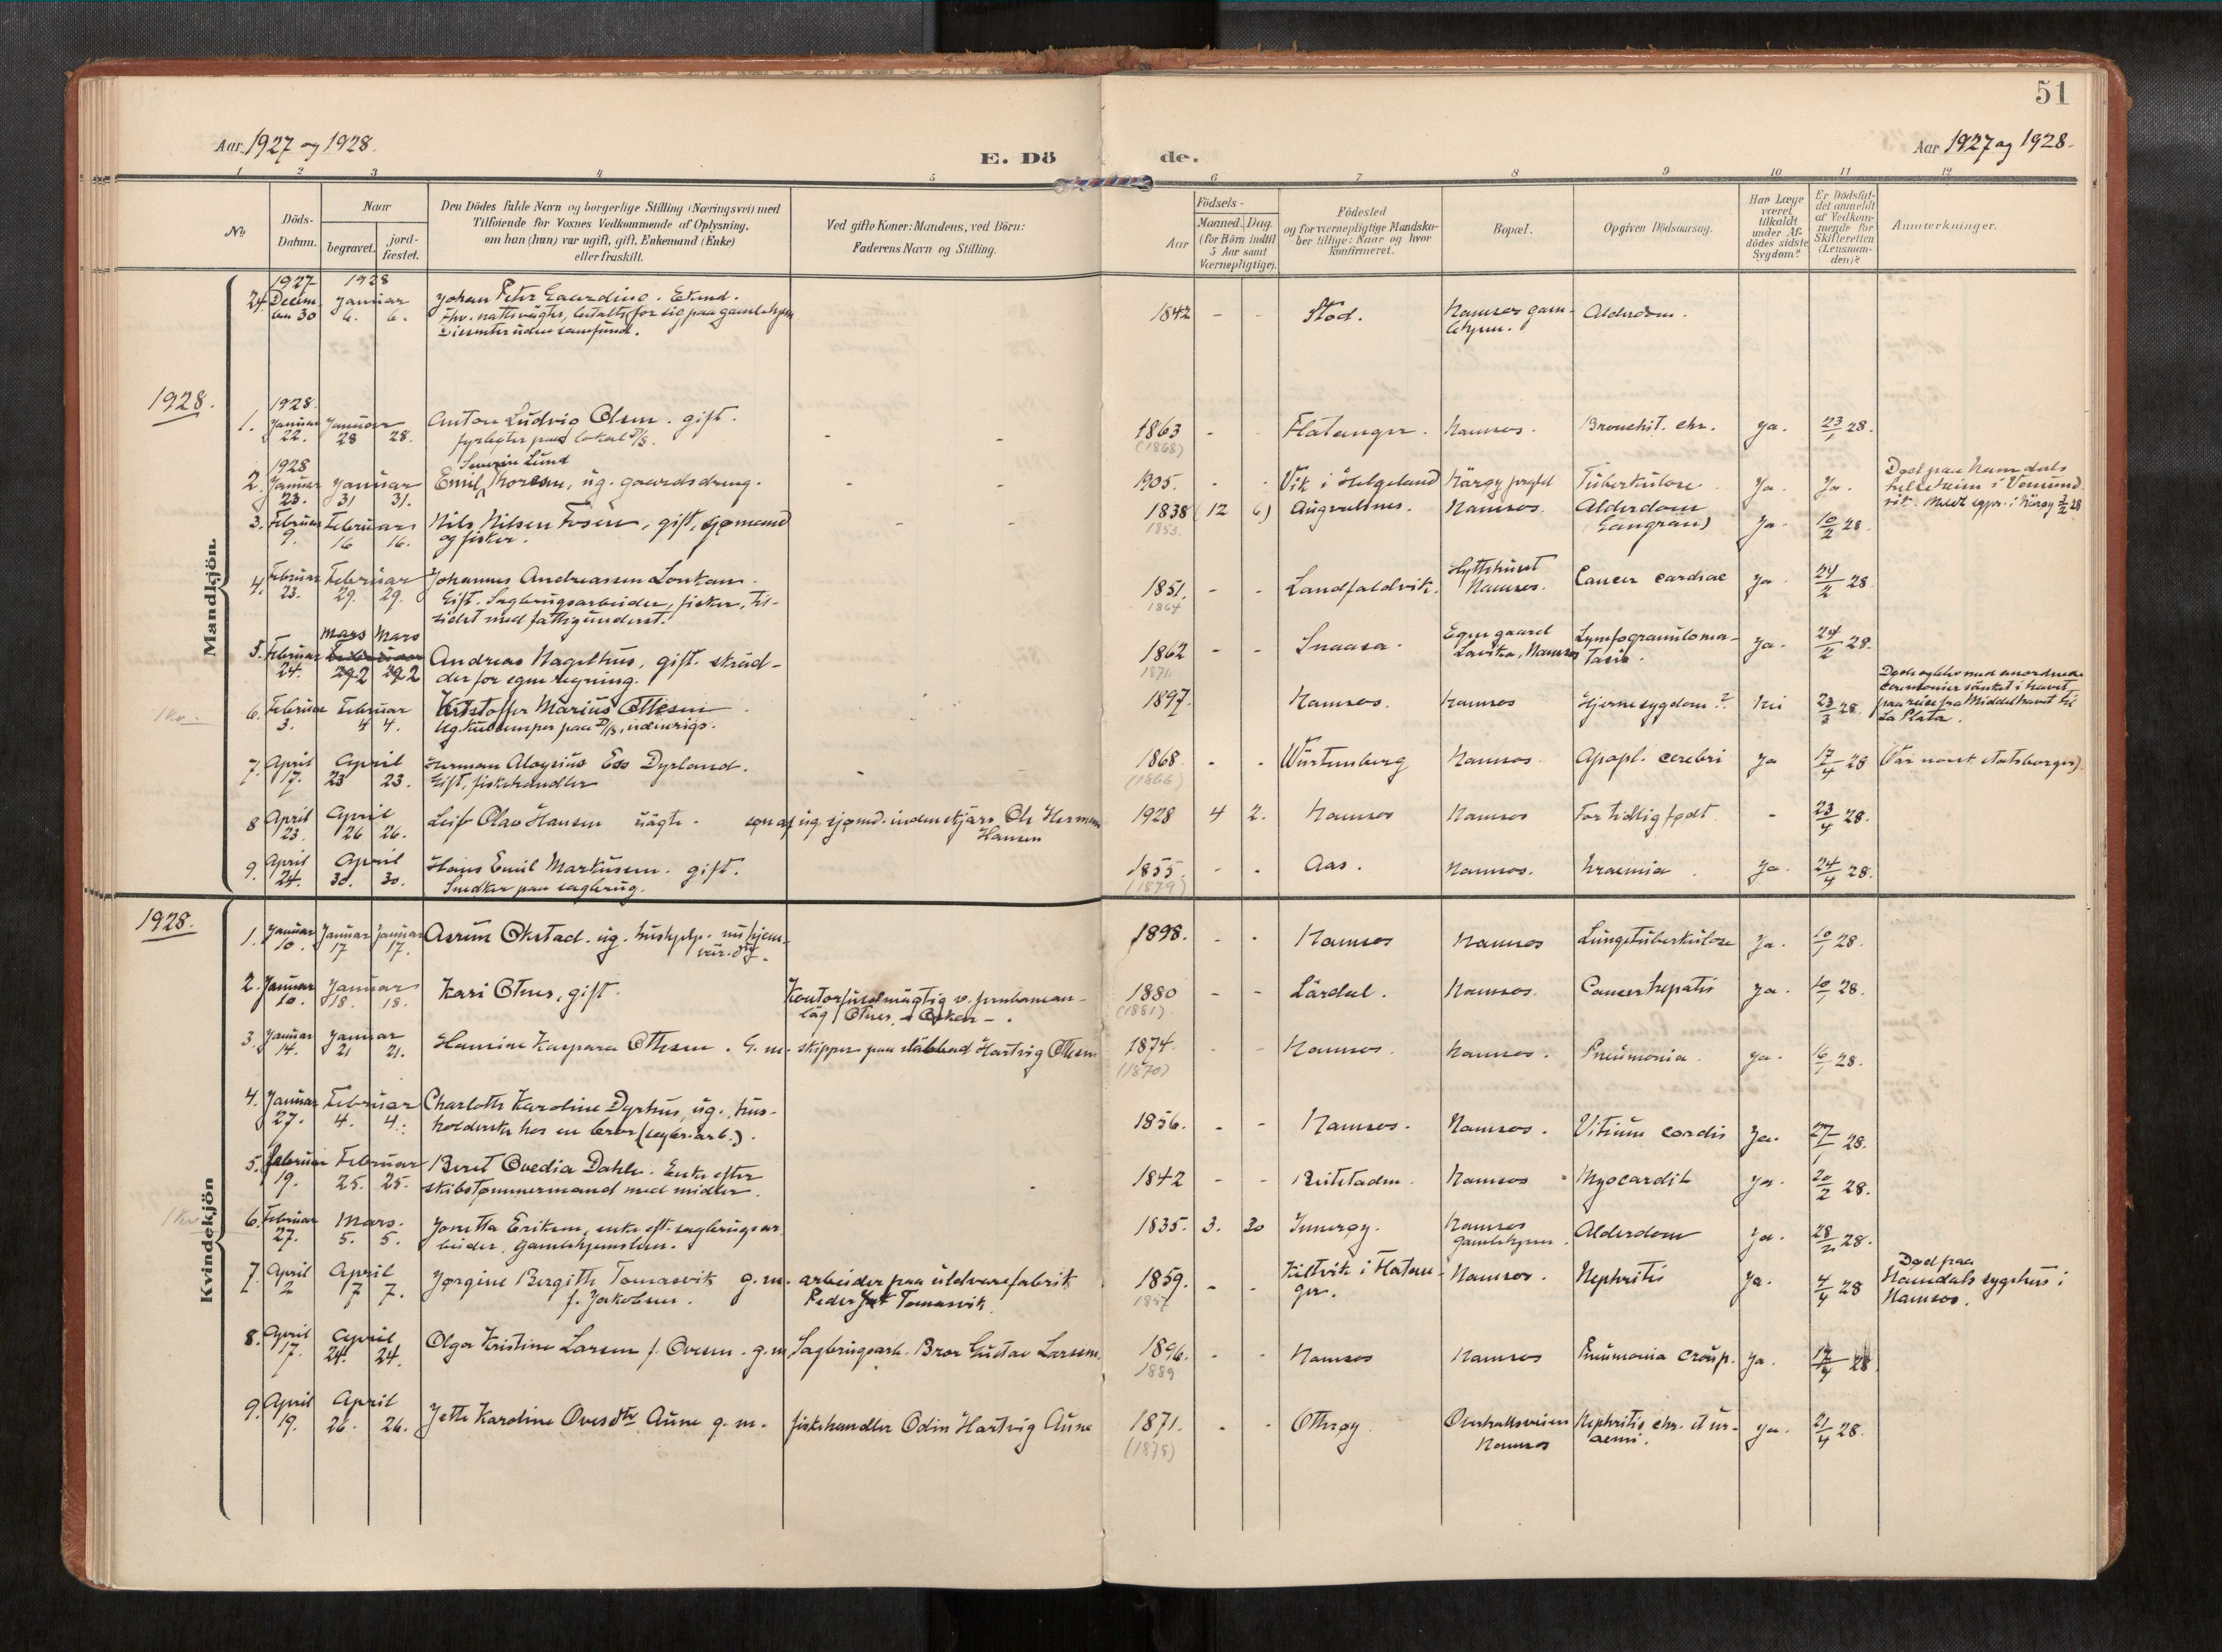 51
Aar 1927 og 1928.
E. Dö de.
Aar 1927 og 1928.
1 2 3 4 5 6 7 8 9 10 11 12
No
Döds-Datum.
Naar
begravet.
jord-fæstet.
Den Dödes fulde Navn og borgerlige Stilling (Næringsvei) med
Tilföiende for Voxnes Vedkommende af Oplysning,
om han (hun) var ugift, gift, Enkemand (Enke)
eller fraskilt.
Ved gifte Koner: Mandens, ved Börn:
Faderens Navn og Stilling.
Födsels-
Aar
Maaned. Dag.
(for Börn indtil
5 Aar samt
Værnepligtige).
Födested
og for værnepligtige Mandska-
ber tillige: Naar og hvor
konfirmeret.
Bopæl.
Opgiven Dödsaarsag.
Har Læge
været
tilkaldt
under Af-
dödes sidste
Sygdom?
Er Dödsfal-
det anmeldt
af Vedkom-
mende for
Skifteretten
(Lensman-
den)?
Anmærkninger.
Mandkjön.
1927 1928
24. Decem Januar Johan Peter
ber 30 6. 6. 1842 - - Stod. Namsos gam- Alderdom.
lehjem.
1928.
1928.
1. Januar Januar Anton Ludvig Olsen. gift. - - 1863 - - Flatanger. Namsos. Bronchit. chr. Ja. 23/1 28.
22. 28 28. fyrbøter paa lokal D/S. (1868)
1928 Severin Lund
2. Januar Januar Emil ug. gaardsdreng. - - 1905. - - Vik i Helgeland Tuberkulose Ja. Ja.
23. 31 31.
3. Februar Februar Nils Nilsen gift, sjømand - - 1838 (12 6) Namsos. Alderdom
9. 16 16. og fisker. 1853. (Gangrän) Ja. 10/2 28.
4. Februar Februar Johannes Andreassen 1851. - - Landfaldvik. Namsos. Cancer cardiae Ja 24/2 28.
23. 29. 29. Gift. Sagbrugsarbeider, fisker, til- 1864
sidst med fattigunderst.
Mars Mars
5. Februar Andreas Nagelhus, gift. skræd- 1862 - - Snaasa. Egen gaard Lymfogranuloma- Ja. 24/2 28.
24. 2 2 der for egen regning. 1871. Namsos
6. Februar Februar Kristoffer Marius Ottesen 1897. Namsos. Namsos Hjernesygdom? Nei 23/3 28.
3. 4 4. paa D/S
paa reise fra Middelhavet til
La Plata.
7. April April Herman Aloysius Ess Dyrland. - 1868 - - Würtemberg Namsos. Apopl. cerebri Ja 17/4 28 (Var norsk statsborger).
17. 23 23. Gift, fiskehandler (1866)
8 April April Leif Olav Hansen uägte. søn af ug. sjømd. Herman 1928 4 2. Namsos Namsos For tidlig født. - 23/4 28.
23. 26 26. Hansen
9. April April Hans Emil Markusen. gift. 1855. - - Aas. Namsos. Uraemia. Ja. 24/4 28.
24. 30. 30. Snedker paa sagbrug. (1879)
1928.
Kvindekjön
1. Januar Januar Januar Okstad. ug. hushjelp. 1898. - - Namsos Namsos Lungetuberkulose Ja. 10/1 28.
10. 17 17.
2. Januar Januar Kari Otnes, gift. Kontorfuldmägtig v. 1880 - - Lärdal. Namsos. Cancer hepatis Ja. 10/1 28.
10. 18. 18. läg Otnes, (1881)
3. Januar Januar Kaspara Ottesen. G. m. skipper paa Hartvig Ottesen 1874. - - Namsos. Namsos. Pneumonia. Ja. 16/1 28.
14. 21 21. (1870)
4. Januar Februar Charlotte Karoline Dyrhus, ug., hus- 1856. - - Namsos. Namsos. Vitium cordis Ja. 27/1 28.
27. 4. 4. holderske hos en bror (sagbr.arb.).
5. Februar Februar Beret Ovedia Dahle. Enke efter 1842 - - Beitstaden. Namsos Myocardit Ja. 20/2 28.
19. 25. 25. skibstømmermand med midler.
6. Februar Mars. Jonetta Eriksen, enke eft. sagbrugsar- 1835. 3. 30 Inderøy. Namsos Alderdom Ja. 28/2 28.
27. 5. 5. beider. Gamlehjemslem. gamlehjem.
7. April April Jørgine Bergitte Tomasvik g. m. arbeider paa uldvarefabrik 1859. - - Namsos. Nephritis Ja. 4/4 28 Død paa
2 7 7. f. Jakobsen. Peder Tomasvik. ger. 1857 Namdals sygehus i
Namsos.
8. April April Olga Kristine Larsen f. Ovesen. g. m. Sagbrugsarb. Bror Gustav Larsen. 1896. - - Namsos Namsos Pneumonia croup. Ja. 17/4 28
17. 24. 24. 1889
9. April April Jette Karoline Ovesdtr. Aune g. m. fiskehandler Odin Hartvig Aune 1871. - - Otterøy Overhallsveien Nephritis chr. et ur- Ja. 21/4 28.
19. 26. 26. (1875) Namsos aemi.